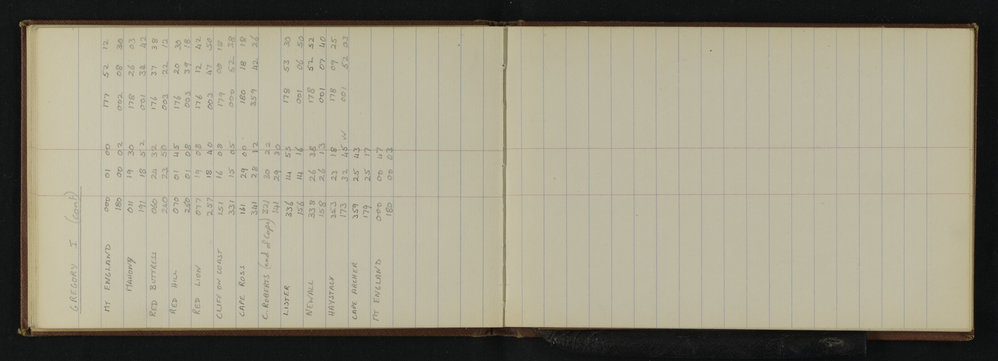 GREGORY I (cont)
MT ENGLAND 000 01 00 177 52 12
180 00 02 002 08 30
MAHONY 011 19 30 178 26 03
191 18 52 001 32 42
RED BUTTRESS 060 24 32 176 37 38
240 23 50 003 22 12
RED HILL 070 01 45 176 20 30
250 01 08 003 39 18
RED LION 077 19 08 176 12 42
257 18 40 003 47 50
CLIFF ON COAST 151 16 08 179 09 18
331 15 05 000 52 38
CAPE ROSS 161 29 00 180 18 18
341 28 32 359 42 26
C. ROBERTS (end of Cape) 321 30 22
141 29 30
LISTER 336 14 55 178 53 30
156 14 16 001 06 50
NEWALL 338 26 38 178 52 52
158 26 13 001 07 40
HAYSTACK 353 33 18 178 07 25
173 32 45 W 001 52 03
CAPE ARCHER 359 25 43
179 25 17
MT ENGLAND 000 00 47
180 00 03